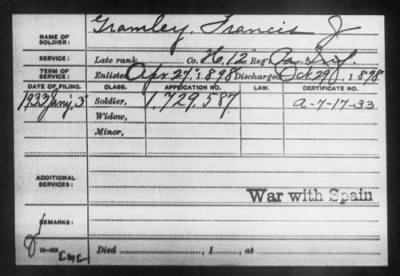 NAME OF SOLDIER: Gramley, Francis J
SERVICE: Late rank, Co. H, 12" Reg't Pa. Inf.
TERM OF SERVICE: Enlisted Apr. 27, 1898 Discharged Oct. 29, 1898
DATE OF FILING. CLASS. APPLICATION NO. LAW. CERTIFICATE NO.
1933 Soldier, 1,729,587 a-7-17-33
Widow,
Minor,
ADDITIONAL SERVICES:
War with Spain
REMARKS:
Died , 1 , at